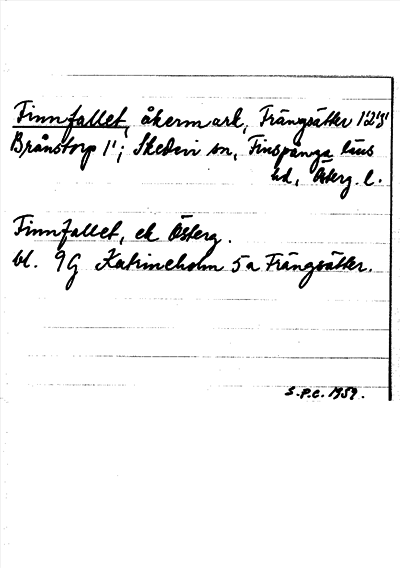 Finnfallet, åkermark, Trängsätter 1:2,3;
Brånstorp 1:1; Skedevi sn, Finspånga läns
hd, Österg. l.
Finnfallet, ek Österg.
bl. 9G Katrineholm 5a Trängsätter.
S.P.C. 1959.